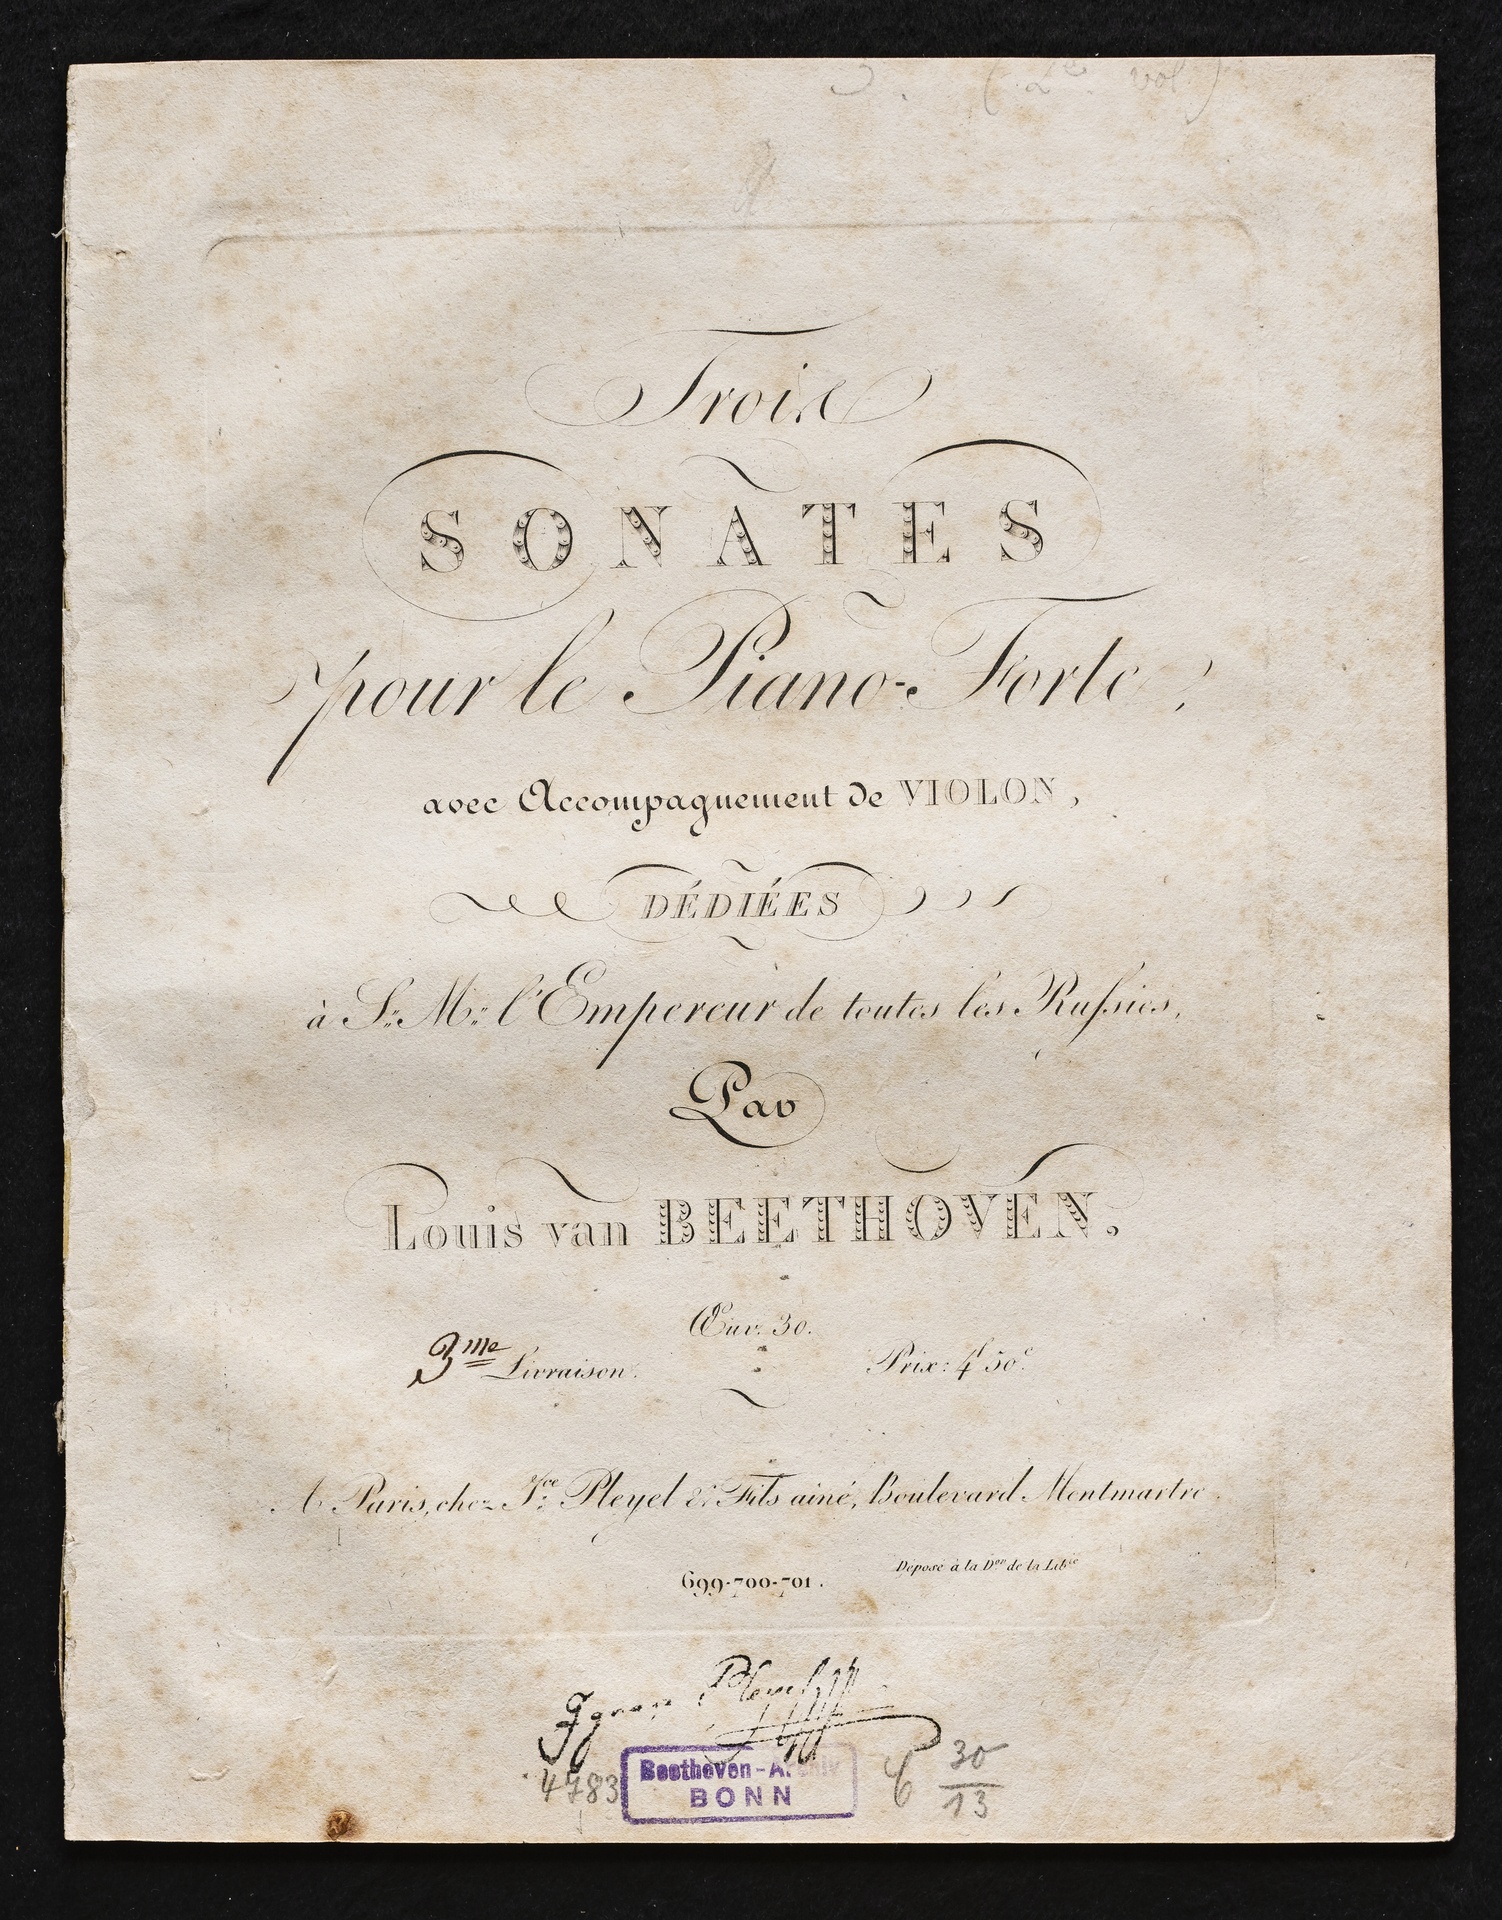 3. (2e. vol.)
Trois
SONATES
pour le Piano-Forte,
avec Accompagnement de VIOLON,
DÉDIÉES
à S. M. l'Empereur de toutes les Russies,
Par
Louis van BEETHOVEN.
Œuv. 30.
3me Livraison. Prix: 4f 50c.
A Paris, chez Ice. Pleyel & Fils ainé, Boulevard Montmartre.
Déposé à la Don de la Libie
699-700-701.
Ignace Pleyel
4783 Beethoven-Archiv
BONN
C 30/13